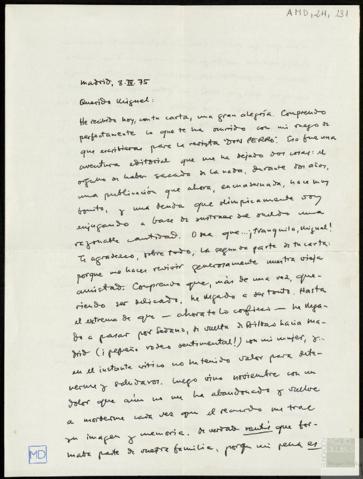 AMD, 24, 131
Madrid, 8.IV.75
Querido Miguel:
He recibido hoy, con tu carta, una gran alegría. Comprendo
perfectamente lo que te ha ocurrido con mi ruego de
que escribieras para la revista "DON PERRO". Eso fue una
aventura editorial que me ha dejado dos cosas: el
orgullo de haber sacado de la nada, durante dos años,
una publicación que ahora, encuadernada, hace muy
bonito, y una deuda que olímpicamente voy
enjugando a base de a mi sueldo una
razonable cantidad. O sea que... ¡tranquilo, Miguel!
Te agradezco, sobre todo, la segunda parte de tu carta
porque me haces revivir generosamente nuestra vieja
amistad. Comprendo que, más de una vez, que-
riendo ser delicado, he llegado a ser tonto. Hasta
el extremo de que — ahora te lo confieso — he llega-
do a pasar por Sedano, de vuelta de Bilbao hacia Ma-
drid (¡pequeño rodeo sentimental!) con mi mujer, y
en el instante crítico no he tenido valor para dete-
nerme y saludaros. Luego vino noviembre con un
dolor que aún no me ha abandonado y vuelve
a morderme cada vez que el recuerdo me trae
su imagen y memoria. De verdad sentís que for-
maba parte de vuestra familia, porque mi pena es
MD